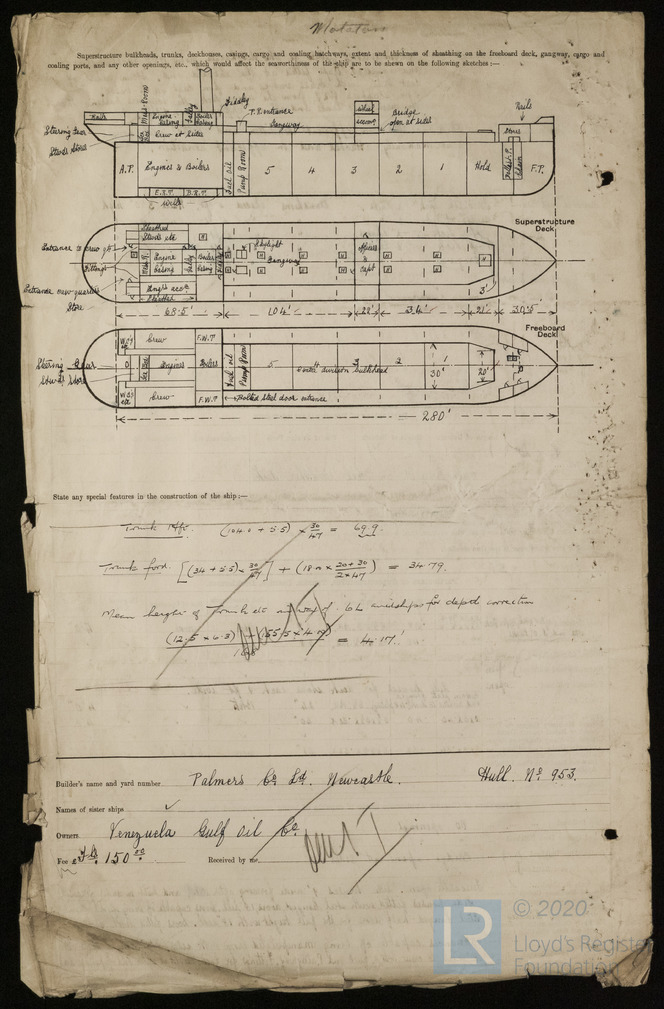 Superstructure bulkheads, trunks, deckhouses, casings, cargo and coaling hatchways, extent and thickness of sheathing on the freeboard deck, gangway, cargo and
coaling ports, and any other openings, etc., which would affect the seaworthiness of the ship are to be shewn on the following sketches:—
Fiddley
T.P. entrance
Gangway
Bridge
open at sides
Rails
Rails
Mess Room
Engine
Casing
Galley
Boiler
Casing
Steering Gear
Stwds Stores
Crew at sides
Stores
A.T.
Engines & Boilers
Fuel oil
Pump Room
5
4
3
2
1
Hold
F.P.
E.R.T.
B.R.T.
Wells
Superstructure
Deck
Stwds etc
Entrance to crew qrs
Skylight
Gangway
Engine
Casing
Galley
Boiler
Casing
Officers
&
Capt
Store
3'
68·5'
104'
22'
34'
21'
30·5
Freeboard
Deck
Crew
F.W.T
Steering Gear
Stwds Store
Engines
Boilers
Fuel oil
Pump Room
5
4
3
2
1
Centre division bulkhead
30'
20'
Crew
F.W.T
Bolted steel door entrance
280'
State any special features in the construction of the ship:—
Trunk Aft. (104·0 + 5·5) × 30/47 = 69·9
Trunk ford. [(34 + 5·5) × 30/47] + (18·0 × 20+30/2×47) = 34·79
Mean height of Trunk etc in way of ·6L amidships for depth correction
= 4·17'
Builder's name and yard number Palmers Co Ld. Newcastle. Hull. No 953.
Names of sister ships
Owners Venezuela Gulf Oil Co
Fee 150
Received by me,
LR
© 2020
Lloyd's Register
Foundation